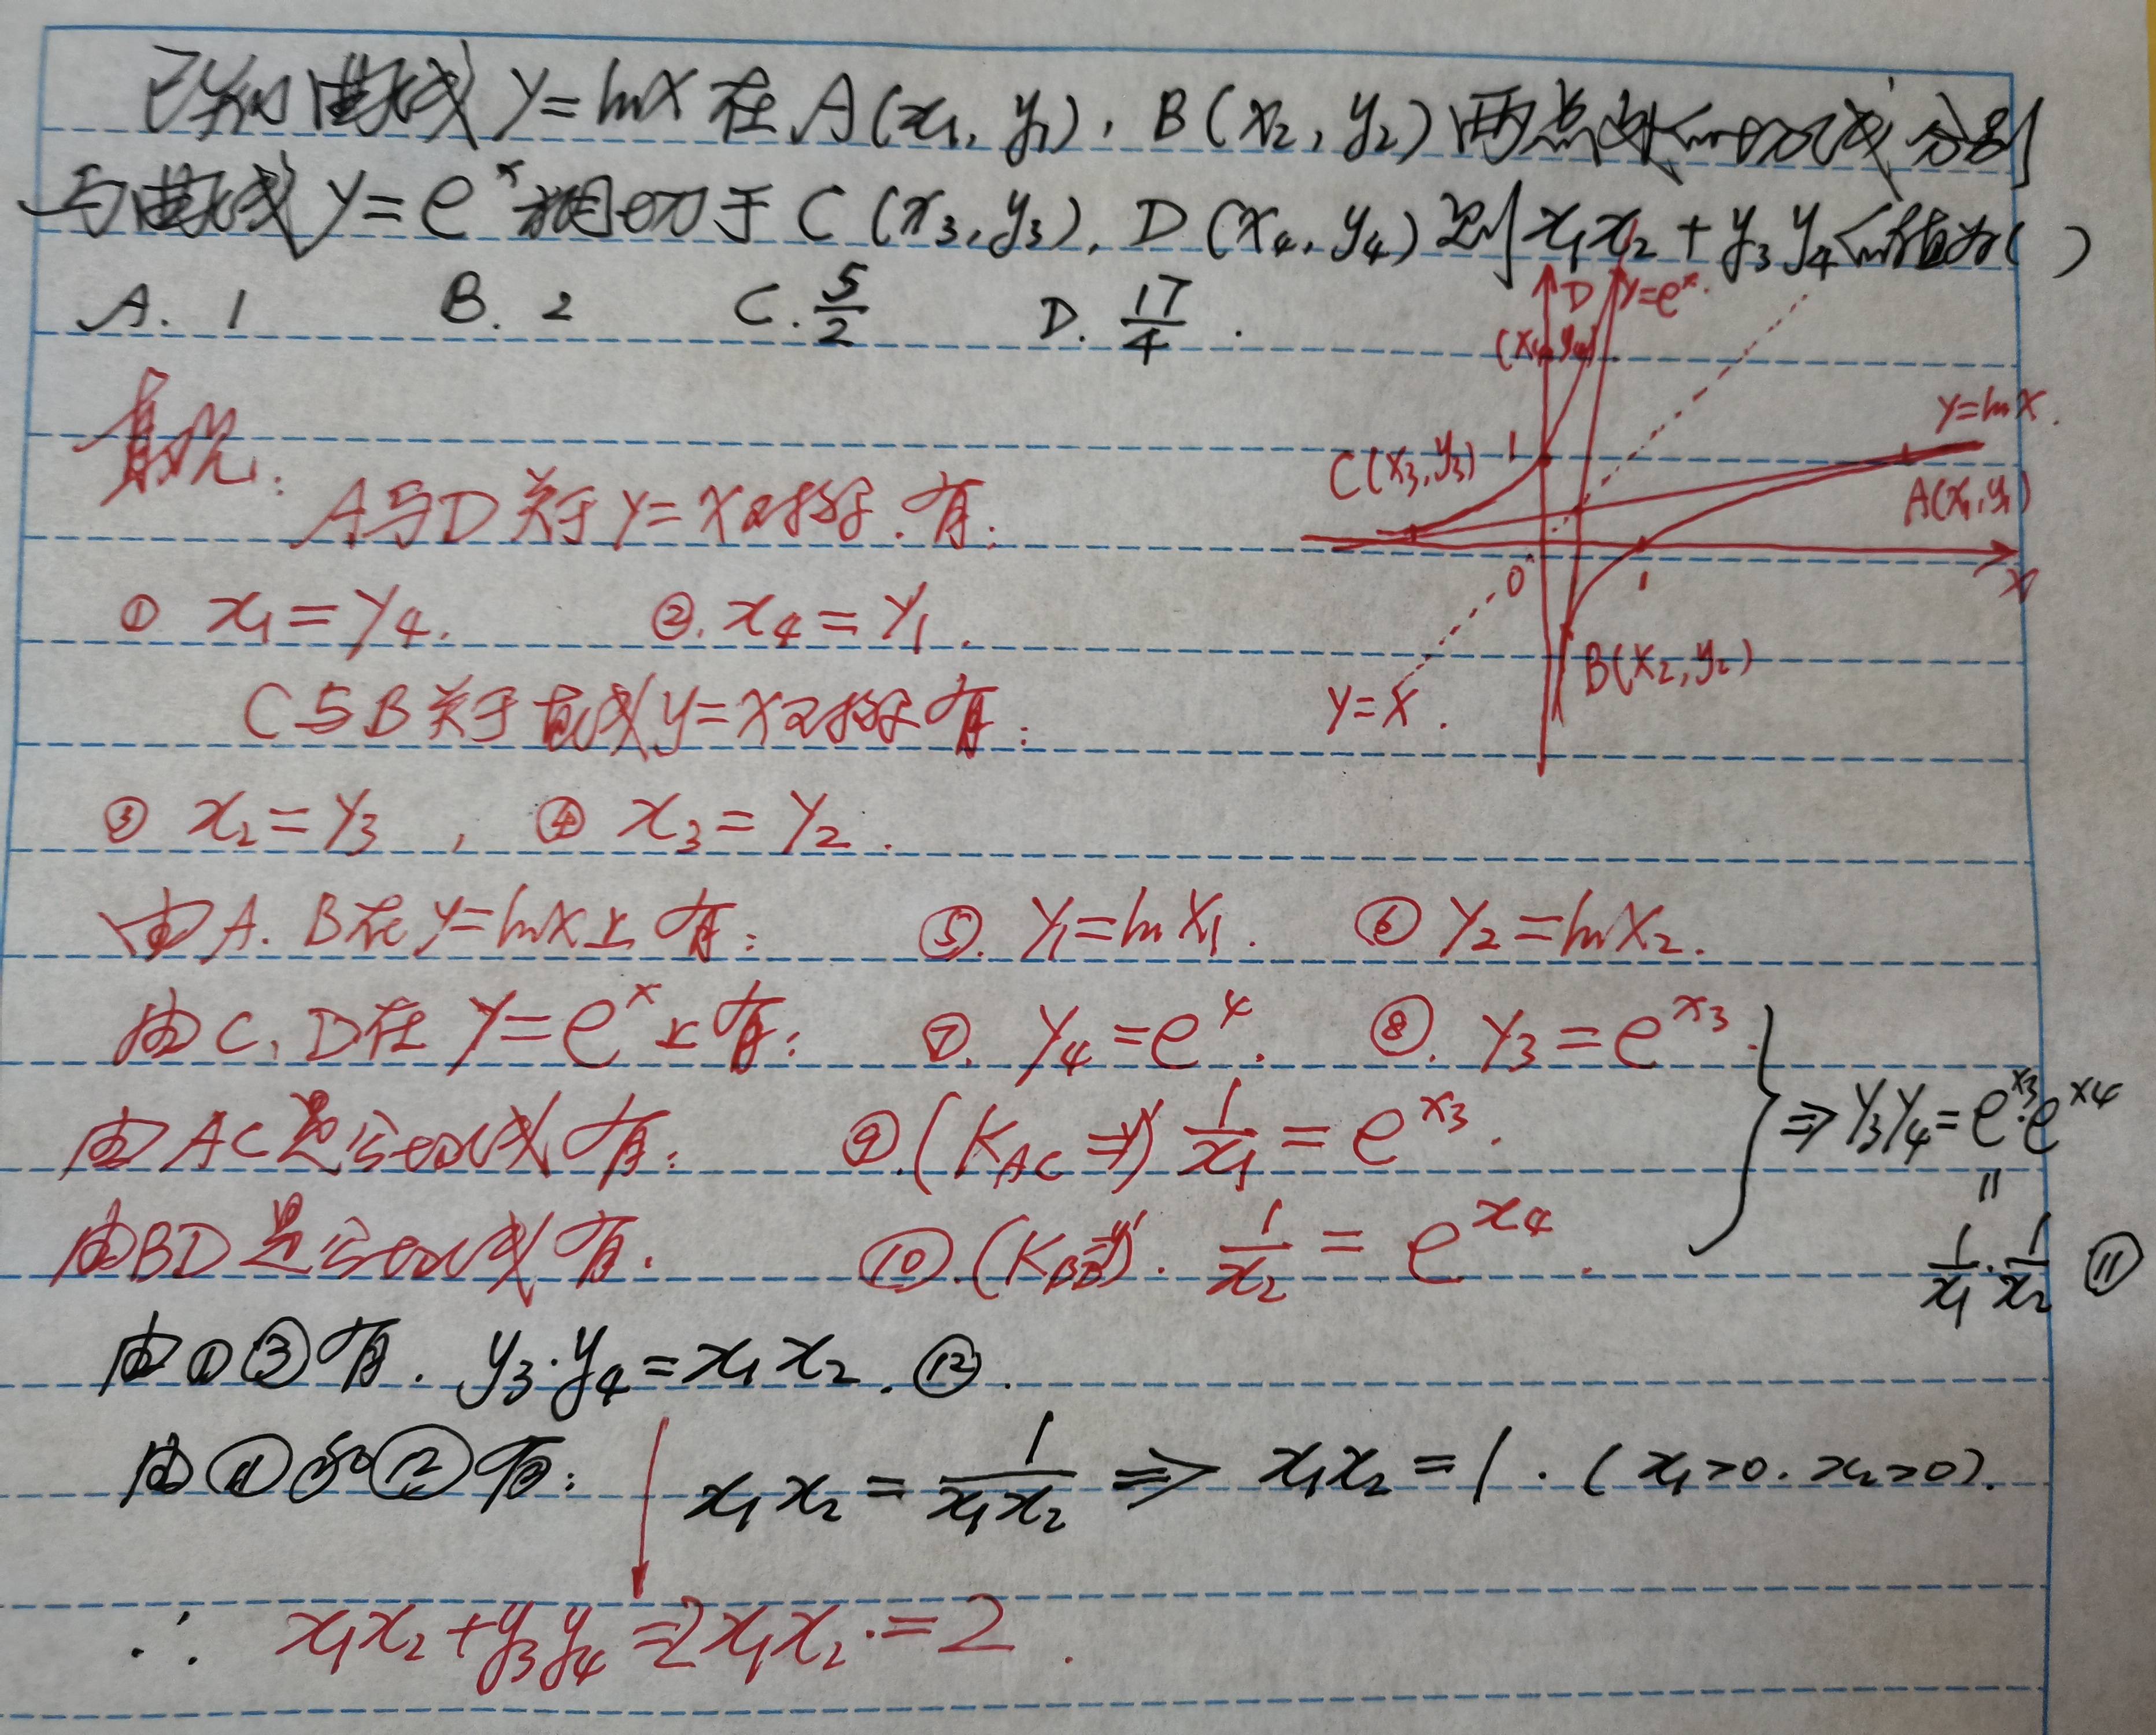 已知曲线 y=lnx 在 A(x₁, y₁), B(x₂, y₂) 两点处的切线分别
与曲线 y=eˣ 相切于 C(x₃, y₃), D(x₄, y₄) 则 x₁x₂+y₃y₄ 的值为( )
A. 1 B. 2 C. 5/2 D. 17/4.
D y=eˣ.
(x₄, y₄)
y=lnx.
C(x₃, y₃) 1
A(x₁, y₁)
0 1 x
B(x₂, y₂)
y=x.
A与D关于y=x对称. 有:
① x₁=y₄. ②. x₄=y₁.
C与B关于直线y=x对称有:
③ x₂=y₃, ④ x₃=y₂.
由A. B在y=lnx上有: ⑤. y₁=lnx₁. ⑥ y₂=lnx₂.
由C, D在y=eˣ上有: ⑦. y₄=e⁴. ⑧. y₃=e^x₃.
由AC是公切线有: ⑨.(K_AC=y') 1/x₁=e^x₃.
由BD是公切线有. ⑩.(K_BD=y'). 1/x₂=e^x₄.
⇒ y₃y₄=e^x₃·e^x₄
=
1/x₁·1/x₂ ⑪
由①③有. y₃·y₄=x₁x₂. ⑫.
由⑪和⑫有: x₁x₂=1/(x₁x₂) ⇒ x₁x₂=1. (x₁>0. x₂>0).
∴ x₁x₂+y₃y₄=2x₁x₂.=2.